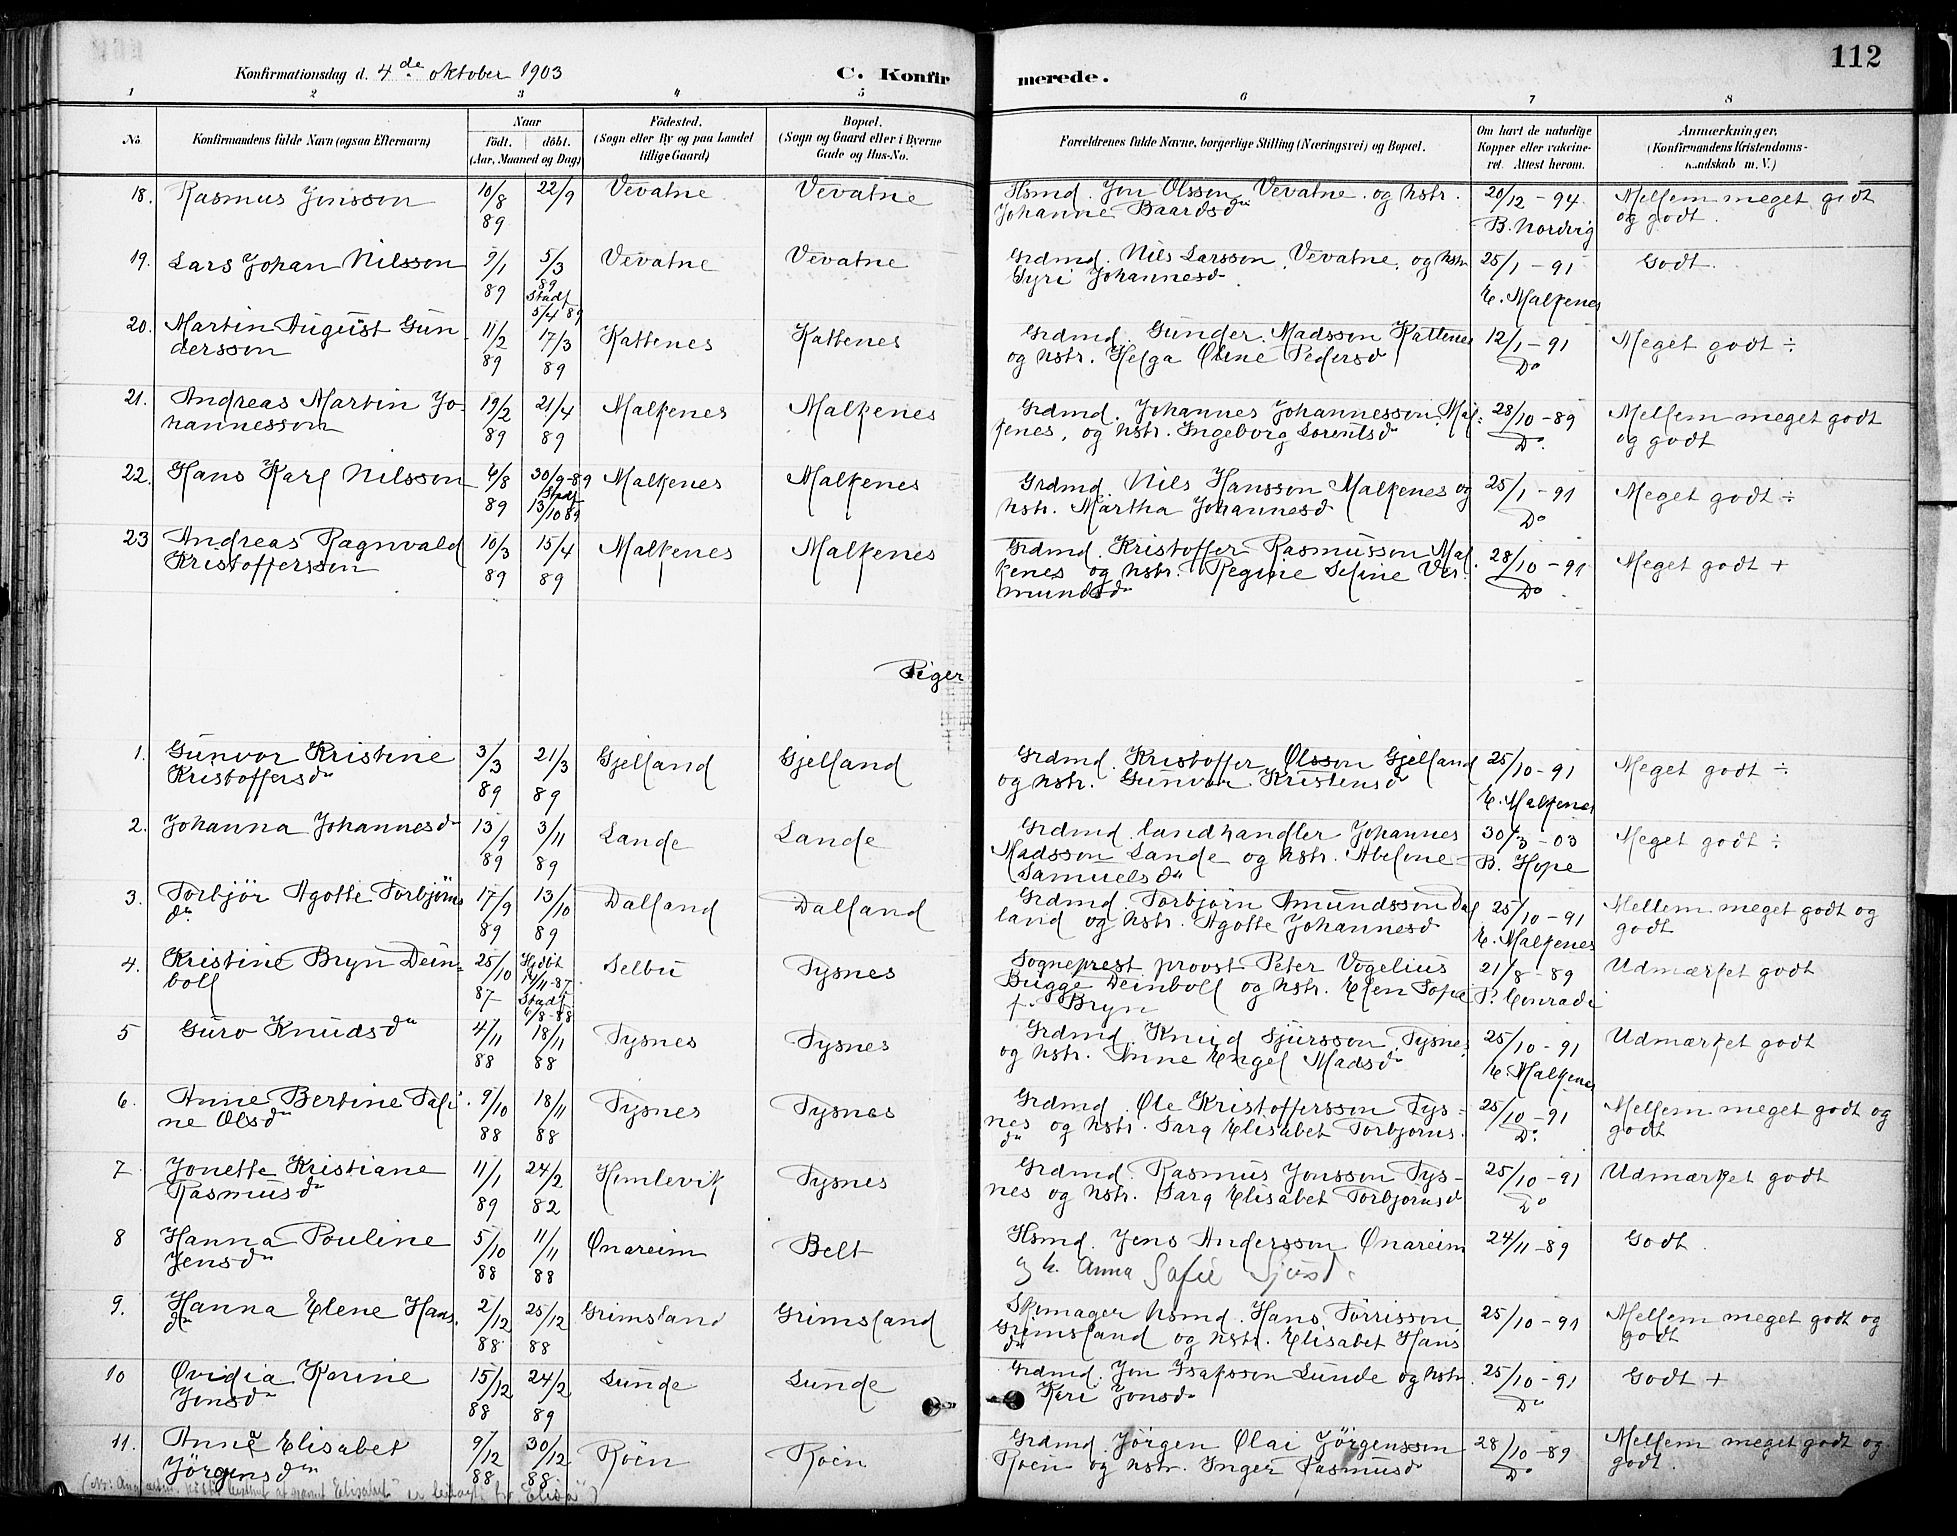 112
Konfirmationsdag d. 4de oktober 1903
C. Konfirmerede.
1 2 3 4 5 6 7 8
No.
Konfirmandens fulde Navn (ogsaa Efternavn)
Naar
født. døbt.
(Aar, Maaned og Dag)
Fødested.
(Sogn eller By og paa Landet
tillige Gaard)
Bopæl.
(Sogn og Gaard eller i Byerne
Gade og Hus-No.
Forældrenes fulde Navne, borgerlige Stilling (Næringsvei) og Bopæl.
Om havt de naturlige
Kopper eller vakcine-
ret. Attest herom.
Anmærkninger,
(Konfirmandens Kristendoms-
kundskab m. V.)
18. Rasmus Jonsson 10/8 89 22/9 Vevatne Vevatne Hsmd. Jon Olsson Vevatne og hstr. 20/12 - 94 Mellem meget godt
Johanne Baardsdn B. Nordvig og godt.
19. Lars Johan Nilsson 9/1 89 5/3 89 Stadf. 5/4 89 Vevatne Vevatne Grdmd. Nils Larsson, Vevatne, og hstr. 25/1 - 91 Godt.
Gyri Johannesd. E. Malkenes
20. Martin August Gun- 11/2 89 17/3 89 Kattenes Kattenes Grdmd. Gunder Madsson Kattenes 12/1 - 91 Meget godt ÷
dersson og hstr. Helga Oline Pedersd Do
21. Andreas Martin Jo- 19/2 89 21/4 89 Malkenes Malkenes Grdmd. Johannes Johannesson Mal- 28/10 - 89 Mellem meget godt
hannesson kenes, og hstr. Ingeborg Lorentsdn Do. og godt
22. Hans Karl Nilsson 6/8 89 30/9-89 Stadf. 13/10 89 Malkenes Malkenes Grdmd. Nils Hansson Malkenes og 25/1 - 91 Meget godt ÷
hstr. Martha Johannesd Do
23 Andreas Ragnvald 10/3 89 15/4 89 Malkenes Malkenes Grdmd. Kristoffer Rasmusson Mal 28/10 - 91 Meget godt +
Kristoffersson kenes og hstr. Regine Seline Ver- Do
mundsdn
Piger
1. Gunvor Kristine 3/3 89 21/3 89 Gjelland Gjelland Grdmd. Kristoffer Olsson Gjelland 25/10 - 91 Meget godt ÷
Kristoffersdn og hstr. Gunvor Kristensd E. Malkenes
2. Johanna Johannesdn 13/9 89 3/11 89 Lande Lande Grdmd. landhandler Johannes 30/3 - 03 Meget godt ÷
Madsson Lande og hstr. Abelone B. Hope
Samuelsdn
3. Torbjør Agotte Torbjørns 17/9 89 13/10 89 Dalland Dalland Grdmd. Torbjørn Amundsson Dal 25/10 - 91 Mellem meget godt og
dn land og hstr. Agotte Johannesd E. Malkenes godt
4. Kristine Bryn Dein- 25/10 87 Hjdøt 14/11-87 Stadf. 6/8-88 Selbu Tysnes Sogneprest provst Peter Vogelius 21/8 - 89 Udmærket godt
boll Bugge Deinboll og hstr. Elen Sofie P. Conradi
f. Bryn
5 Guro Knudsdn 4/11 88 18/11 88 Tysnes Tysnes Grdmd. Knud Sjursson Tysnes 25/10 - 91 Udmærket godt
og hstr. Anne Engel Madsdn E. Malkenes
6. Anne Bertine Tali 9/10 88 18/11 88 Tysnes Tysnes Grdmd. Ole Kristoffersson Tys- 25/10 - 91 Mellem meget godt og
ne Olsdn nes og hstr. Sara Elisabet Torbjørns. Do. godt
dn
7 Jonette Kristiane 11/1 89 24/2 82 Himlevik Tysnes Grdmd. Rasmus Jonsson Tys- 25/10 - 91 Udmærket godt
Rasmusdn nes og hstr. Sara Elisabet Torbjørnsd Do
8 Hanna Pouline 5/10 88 11/11 88 Onareim Belt Hsmd. Jens Andersson Onareim 24/11 - 89 Godt.
Jensdn og h. Anna Sofie Sjursd.
9. Hanna Elene Hans. 2/12 88 25/12 88 Grimsland Grimsland Skomager hsmd. Hans Tørrisson 25/10 - 91 Mellem meget godt og
dn Grimsland og hstr. Elisabet Hans godt
dn
10 Ovidia Karine 15/12 88 24/2 89 Sunde Sunde Grdmd. Jon Isaksson Sunde og hstr. 25/10 - 91 Godt +
Jonsdn Kari Jonsdn Do
11. Anna Elisabet 9/12 88 30/12 88 Roen Roen Grdmd. Jørgen Olai Jørgensson 28/10 - 89 Mellem meget godt og
Jørgensdn Roen og hstr. Inger Rasmusd Do godt.
Elisabet" er "Elisa")